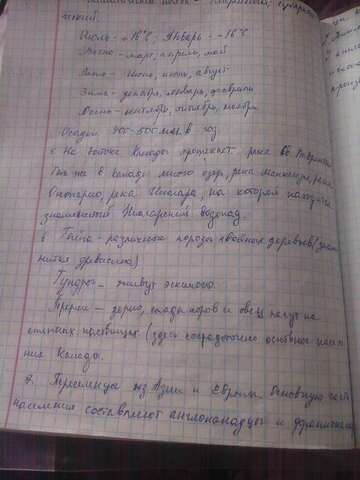 Климатический пояс - умеренный,
Июль - +16°C; Январь - -16°C
Весна - март, апрель, май
Лето - июнь, июль, август
Зима - декабрь, январь, февраль
Осень - сентябрь, октябрь, ноябрь
Осадки 400-500 мм в год
На востоке Канады протекает река Св. Лаврентия
в Канаде много озёр, река Маккензи,
Онтарио, река Ниагара, на которой находится
знаменитый Ниагарский водопад.
6 Тайга - различные породы хвойных деревьев
древесина)
Тундры - живут эскимосы.
Прерии - зерно, стада коров и овец пасут на
пастбищах (здесь сосредоточено основное насе-
ние Канады.
7. Переселенцы из Азии и Европы. Основную часть
населения составляют англоканадцы и